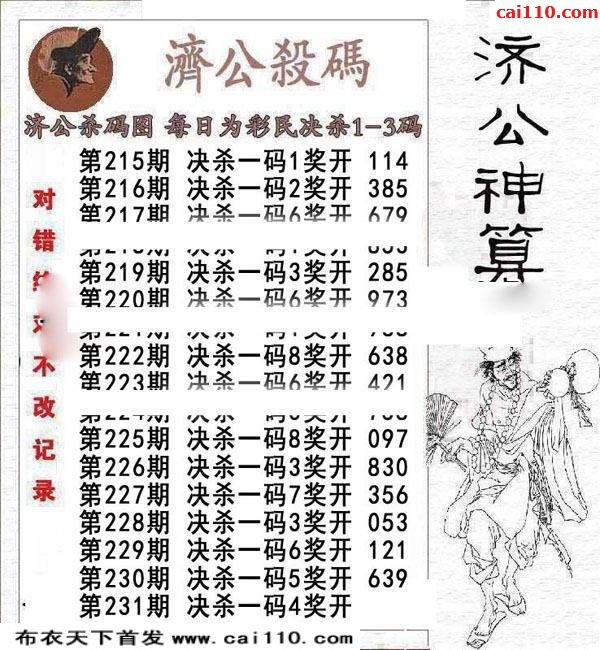 cai110.com
濟公殺碼
济公杀码图 每日为彩民决杀1-3码
济公神算
对错 不改记录
第215期 决杀一码1奖开 114
第216期 决杀一码2奖开 385
第217期 决杀一码6奖开 679
第219期 决杀一码3奖开 285
第220期 决杀一码6奖开 973
第222期 决杀一码8奖开 638
第223期 决杀一码6奖开 421
第225期 决杀一码8奖开 097
第226期 决杀一码3奖开 830
第227期 决杀一码7奖开 356
第228期 决杀一码3奖开 053
第229期 决杀一码6奖开 121
第230期 决杀一码5奖开 639
第231期 决杀一码4奖开
布衣天下首发 www.cai110.com